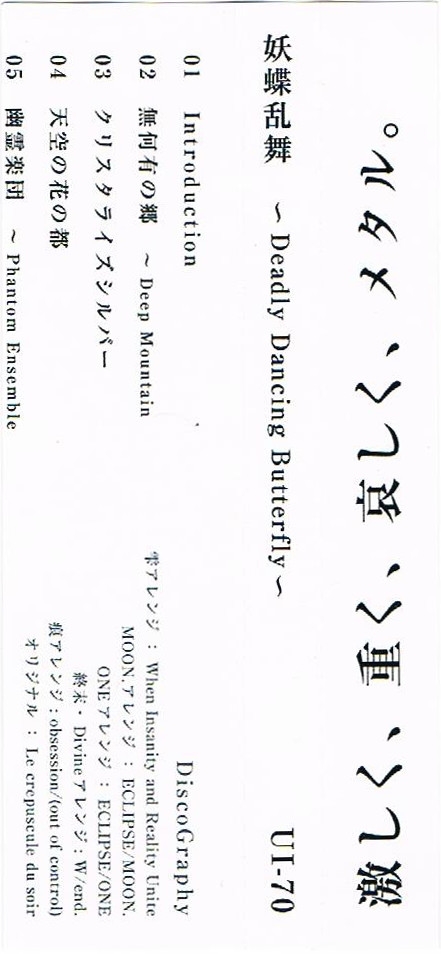 激しく、重く、哀しく、メタル。
妖蝶乱舞　～Deadly Dancing Butterfly～
UI-70
01　Introduction
02　無何有の郷　～ Deep Mountain
03　クリスタライズシルバー
04　天空の花の都
05　幽霊楽団　～ Phantom Ensemble
DiscoGraphy
雫アレンジ : When Insanity and Reality Unite
MOON.アレンジ : ECLIPSE/MOON.
ONEアレンジ : ECLIPSE/ONE
終末・Divineアレンジ : W/end.
痕アレンジ : obsession/(out of control)
オリジナル : Le crepuscule du soir